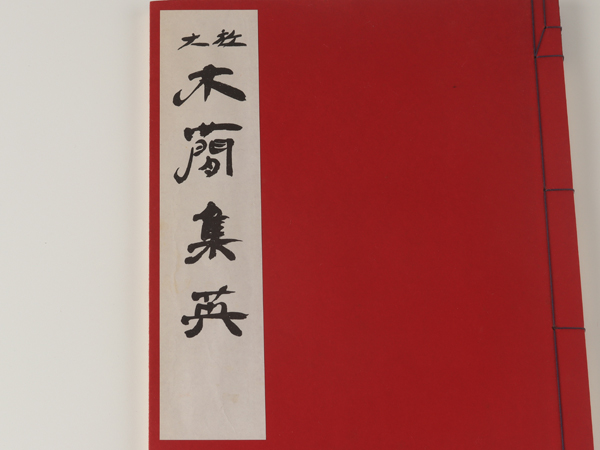 拡大
木簡集英